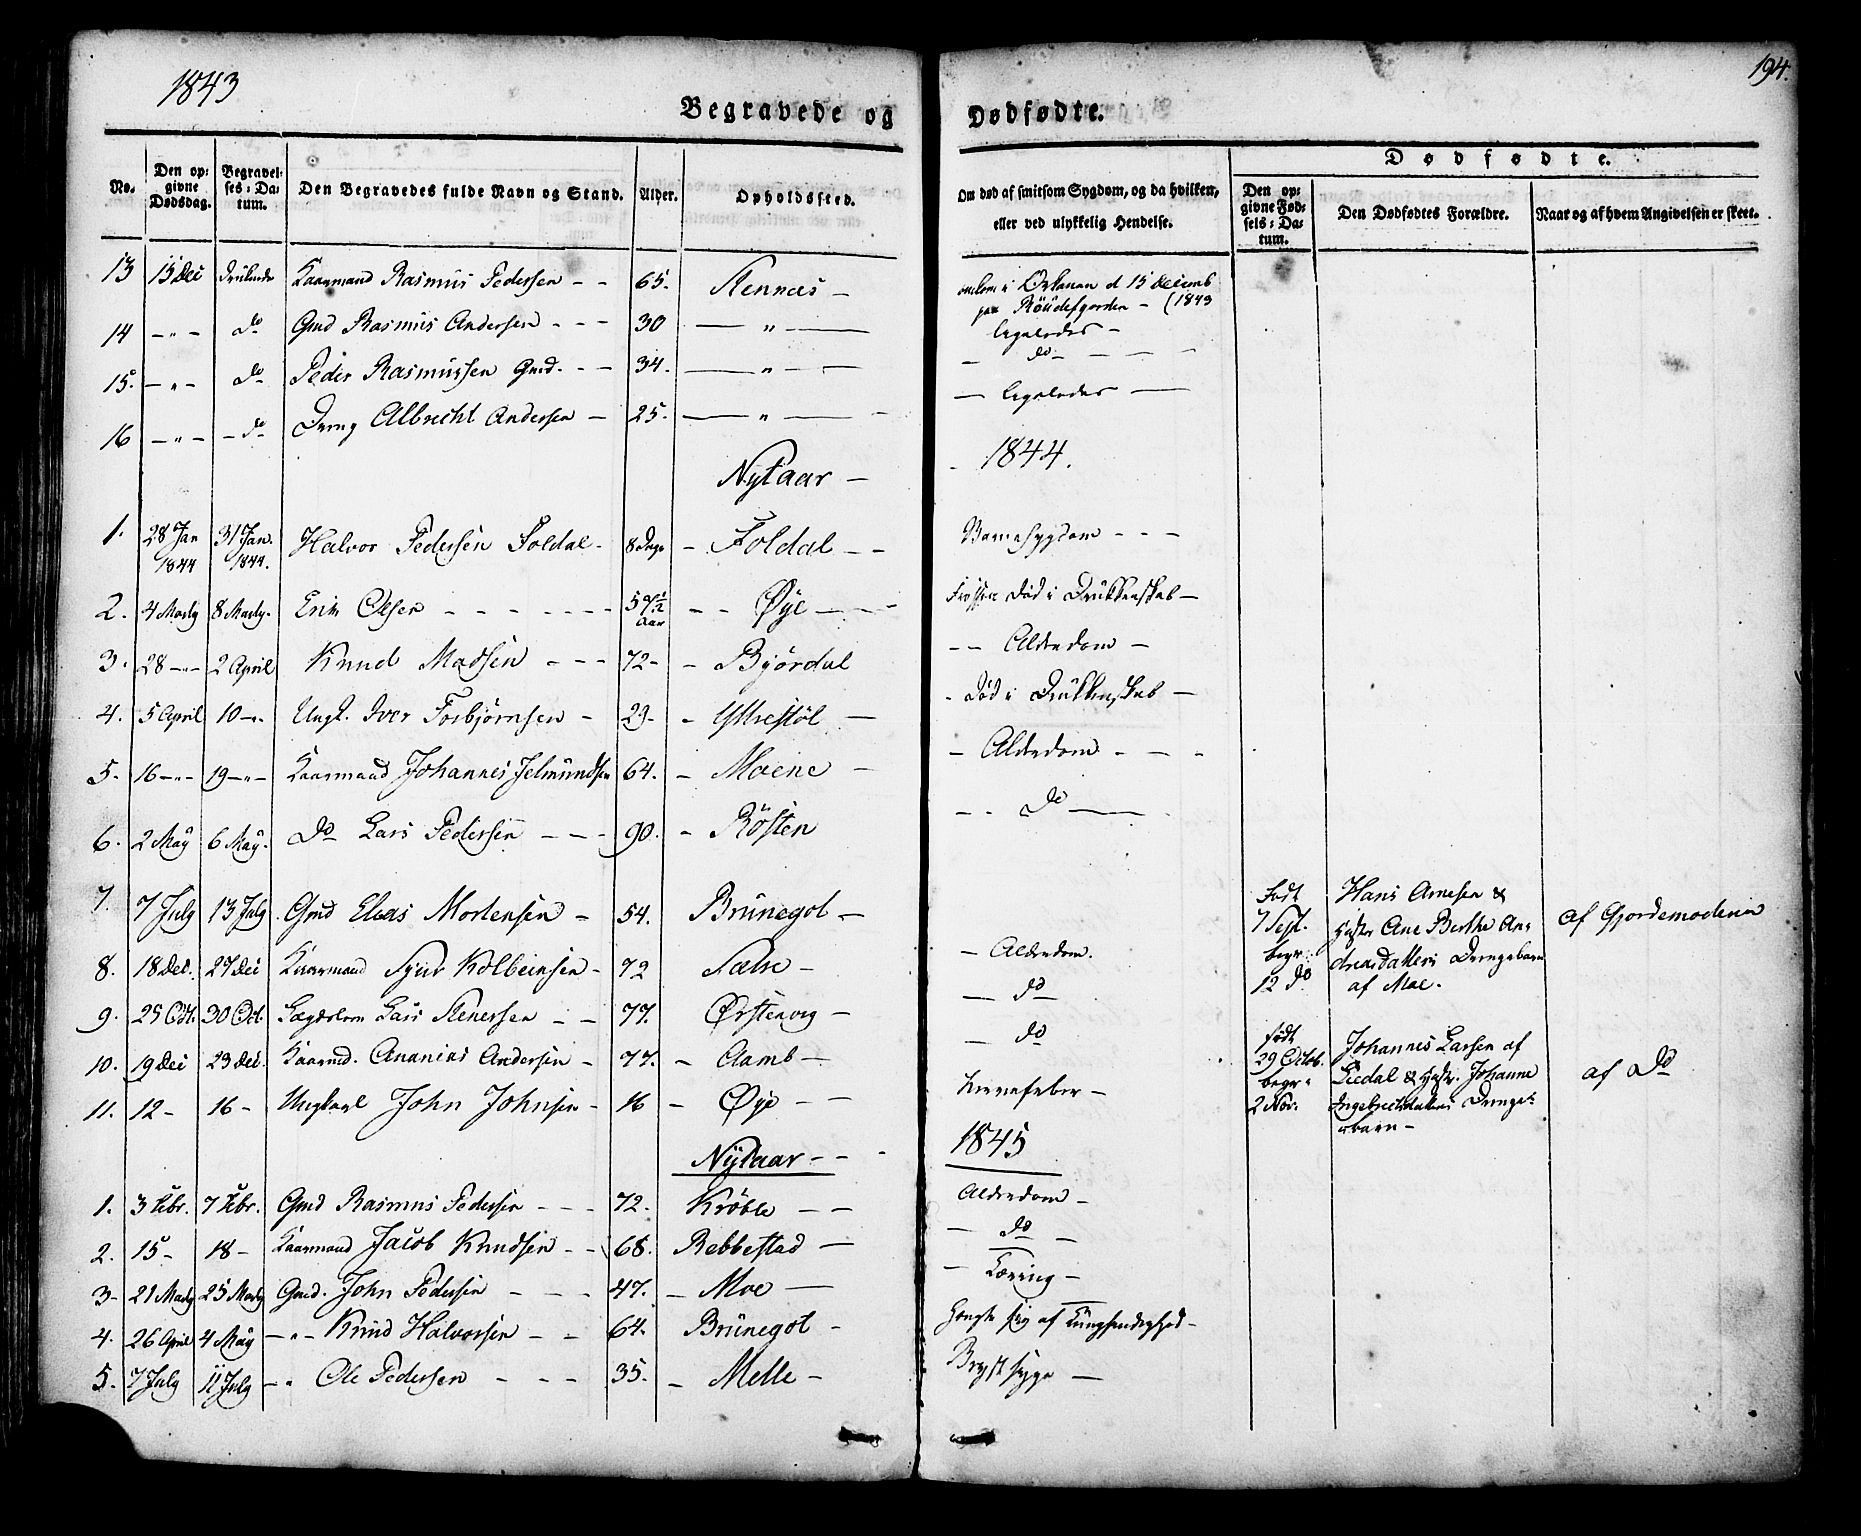 1843
194.
Begravede og Dødfødte.
No.
Den opgivne Dødsdag.
Begravelses-Datum.
Den Begravedes fulde Navn og Stand.
Alder.
Opholdssted.
Om død af smitsom Sygdom, og da hvilken, eller ved ulykkelig Hendelse.
Dødfødte.
Den opgivne Fødsels-Datum.
Den Dødfødtes Forældre.
Naar og af hvem Angivelsen er skeet.
13 15 Dec Kaarmand Rasmus Pedersen - - 65. d 15 Decemb (1843
14 - " - do Gmd Rasmus Andersen - - - 30 — " —
15. - " - do Peder Rasmussen Gmd. - - 34. — " — — do —
16 - " - - do Dreng Albrecht Andersen - 25. — " —
Nytaar - 1844.
1. 28 Jan 1844 31 Jan. 1844. Halvor Pedersen Foldal - 8 Dage - Foldal - - Barnesygdom - - -
2. 4 Marty 8 Marty. Erik Olsen - - - Aar - - Øye - - død i Drukkenskab -
3. 28 - " - 2 April Knud Madsen - - - 72 - - Bjørdal - - Alderdom -
4. 5 April 10 - " - Ungk. Iver Torbjørnsen - 29 - - Ytrestøl - - Død i Drukkenskab -
5. 16 - " - 19 - " - Kaarmand Johannes Jelmundsen 64. - Moene - - Alderdom - - -
6. 2 May 6 May. do Lars Pedersen - - - 90. - Røsten - - do —
7. 7 July 13 July. Gmd Elias Mortensen - 54. Brunegot -
8. 18 Dec. 27 Dec Kaarmand Sjur Kolbeinsen - 72 Sætre - - Alderdom.
9. 25 Oct. 30 Oct. Lægdslem Lars Stenersen - - 77. Ørstenvig - — do
10. 19 Dec 23 Dec. Kaarmd. Ananias Andersen - 77. - Aamb - - do
11. 12 - 16 - Ungkarl John Johnsen - 16 - Øye - - Nervefeber -
Født 7 Sept. begr. 12 do
Hans Arnesen &
Hustr Ane Berthe An-
dreasdatters Drengebarn
af Moe.
af Gjordemoderen
født 29 Octob. begr. 2 Nov.
Johannes Larsen af
& Hustr. Johanne
Ingebrechtdatters Drenge-
barn -
af Do
Nytaar - - 1845
1. 3 Febr. 7 Febr. Gmd Rasmus Pedersen - - - 72. Krøble - - Alderdom -
2. 15 - 18 - Kaarmand Jacob Knudsen - - 68. Rebbestad - - do -
3 - 21 Marty 25 Marty Gmd. John Pedersen - - - 47. - Moe - - Tæring -
4. 26 April 4 May - " - Knud Halvorsen - - 64. Brunegot - Hængte sig af Tungsindighed -
5. 7 July 11 July - " Ole Pedersen - - - 35. - Melle - Brystsyge -